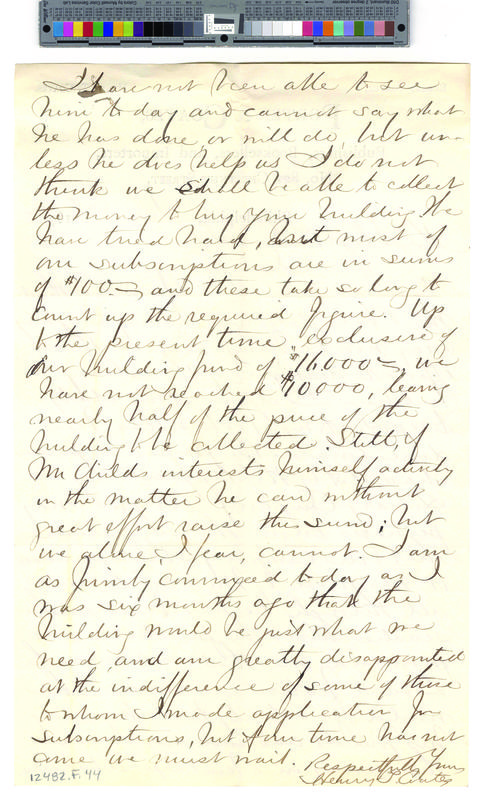 I have not been able to see
him to day and cannot say what
he has done, or will do, but un-
less he does help us I do not
think we shall be able to collect
the money to buy your building We
have tried hard, but most of
our subscriptions are in sums
of $100.— and these take so long to
count up the required figure. Up
to the present time, exclusive of
our building fund of $16,000—, we
have not reached $10000, leaving
nearly half of the price of the
building to be collected. Still, if
Mr Childs interests himself actively
in the matter he can without
great effort raise this sum; but
we alone, I fear, cannot. I am
as firmly convinced to day as I
was six months ago that the
building would be just what we
need, and am greatly disappointed
at the indifference of some of those
to whom I made application for
subscriptions, but if our time has not
come we must wait.
Respectfully Yours
Henry
12482.F.44